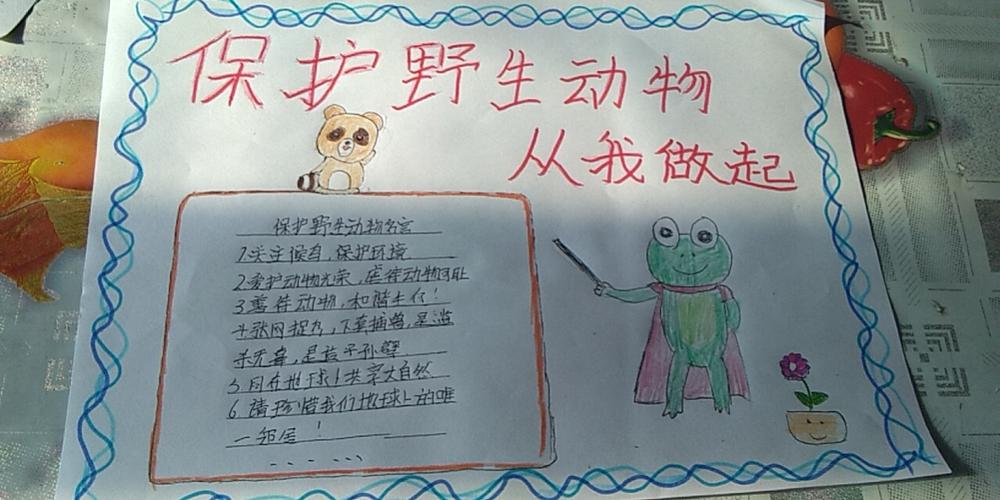 保护野生动物
从我做起
保护野生动物名言
1.关注候鸟,保护环境
2.爱护动物光荣,虐待动物可耻
3.善待动物,和谐
4.张网捉鸟,下套捕兽,是滥
杀无辜,是 子孙孽.
5.同在地球!共享大自然
6.请珍惜我们地球上的唯
一 邻居!